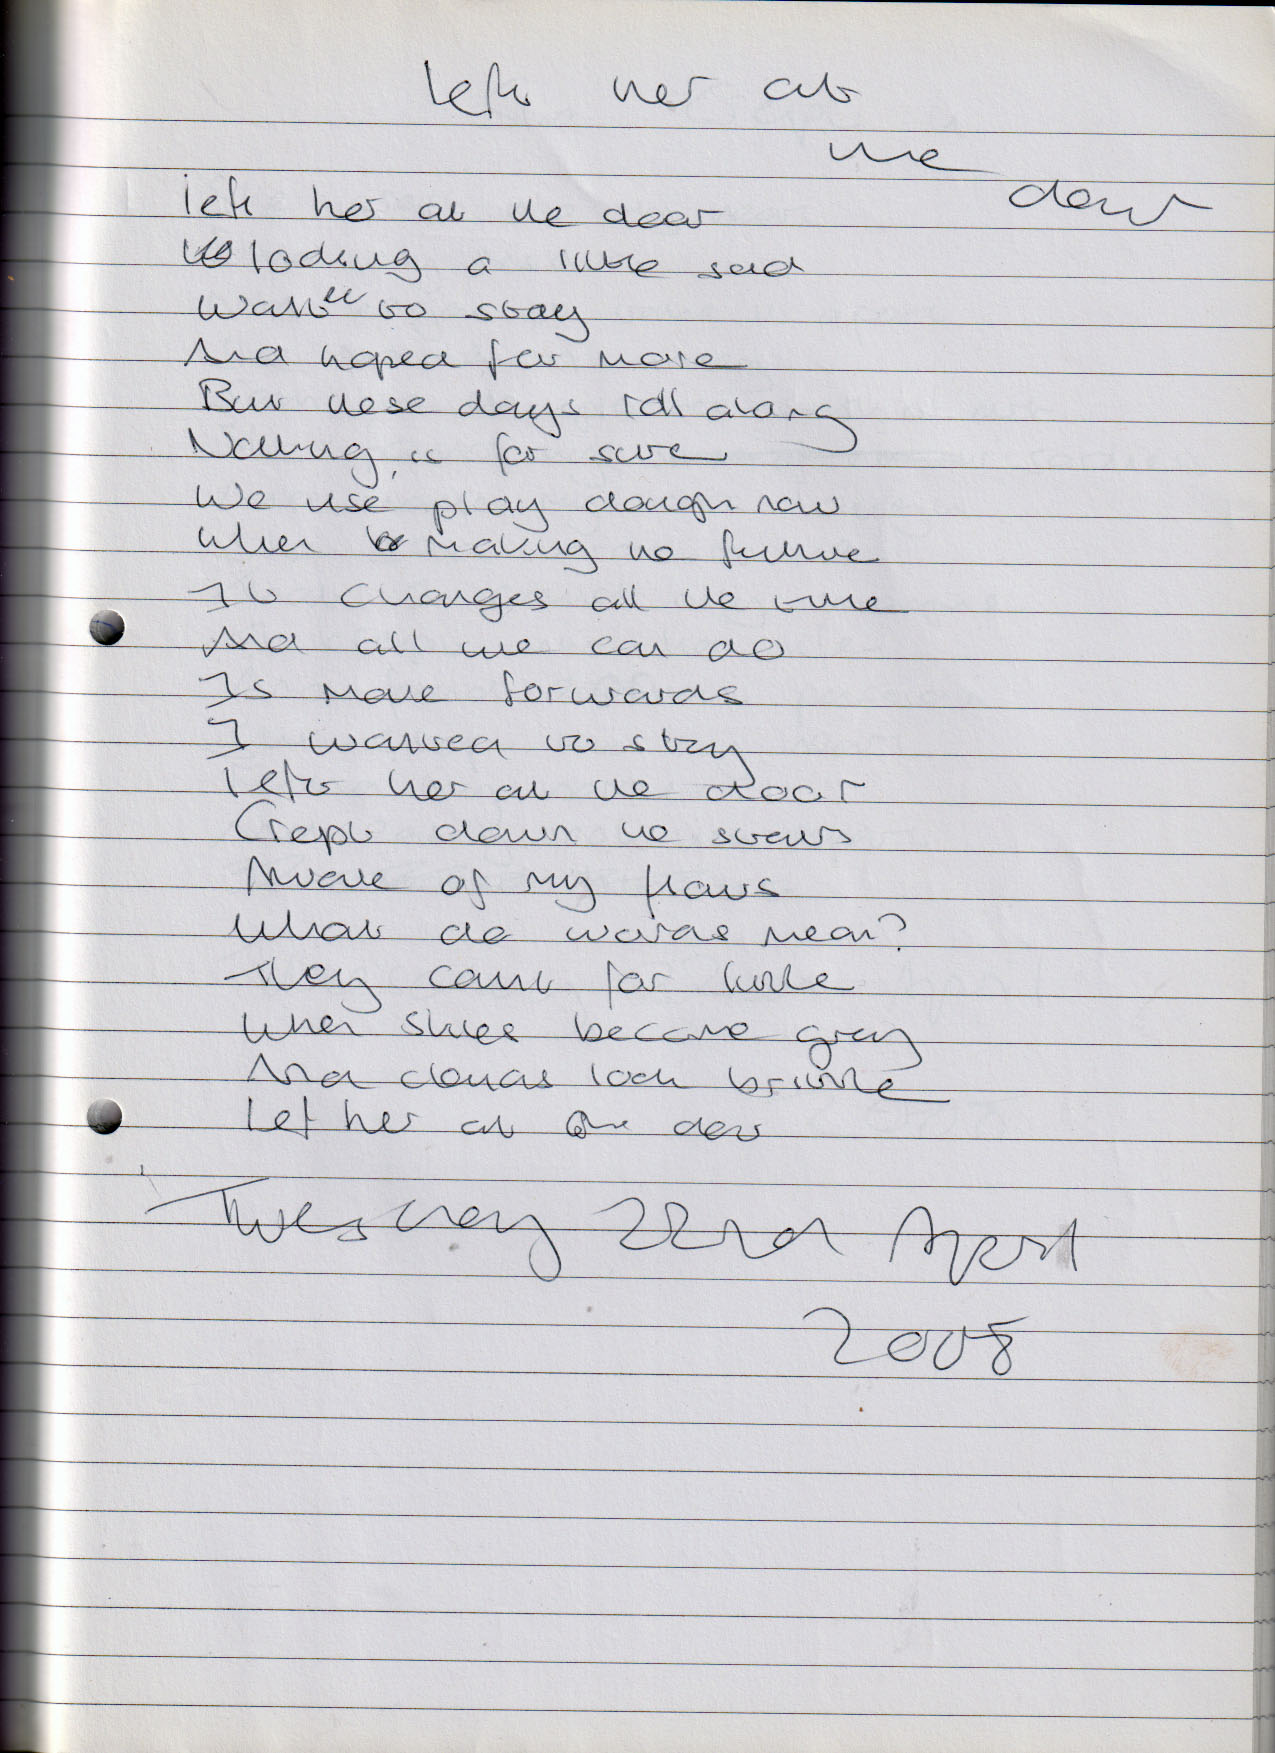 Left her at
the
door
Left her at the door
looking a little sad
Wanted to stay
And hoped for more
But these days roll along
Nothing is for sure
We use play dough now
When making the future
It changes all the time
And all we can do
Is move forwards
I wanted to stay
Left her at the door
Crept down the stairs
Aware of my flaws
What do words mean?
They count for little
When skies become grey
And clouds look brittle
Left her at the door
Tuesday 22nd April
2008